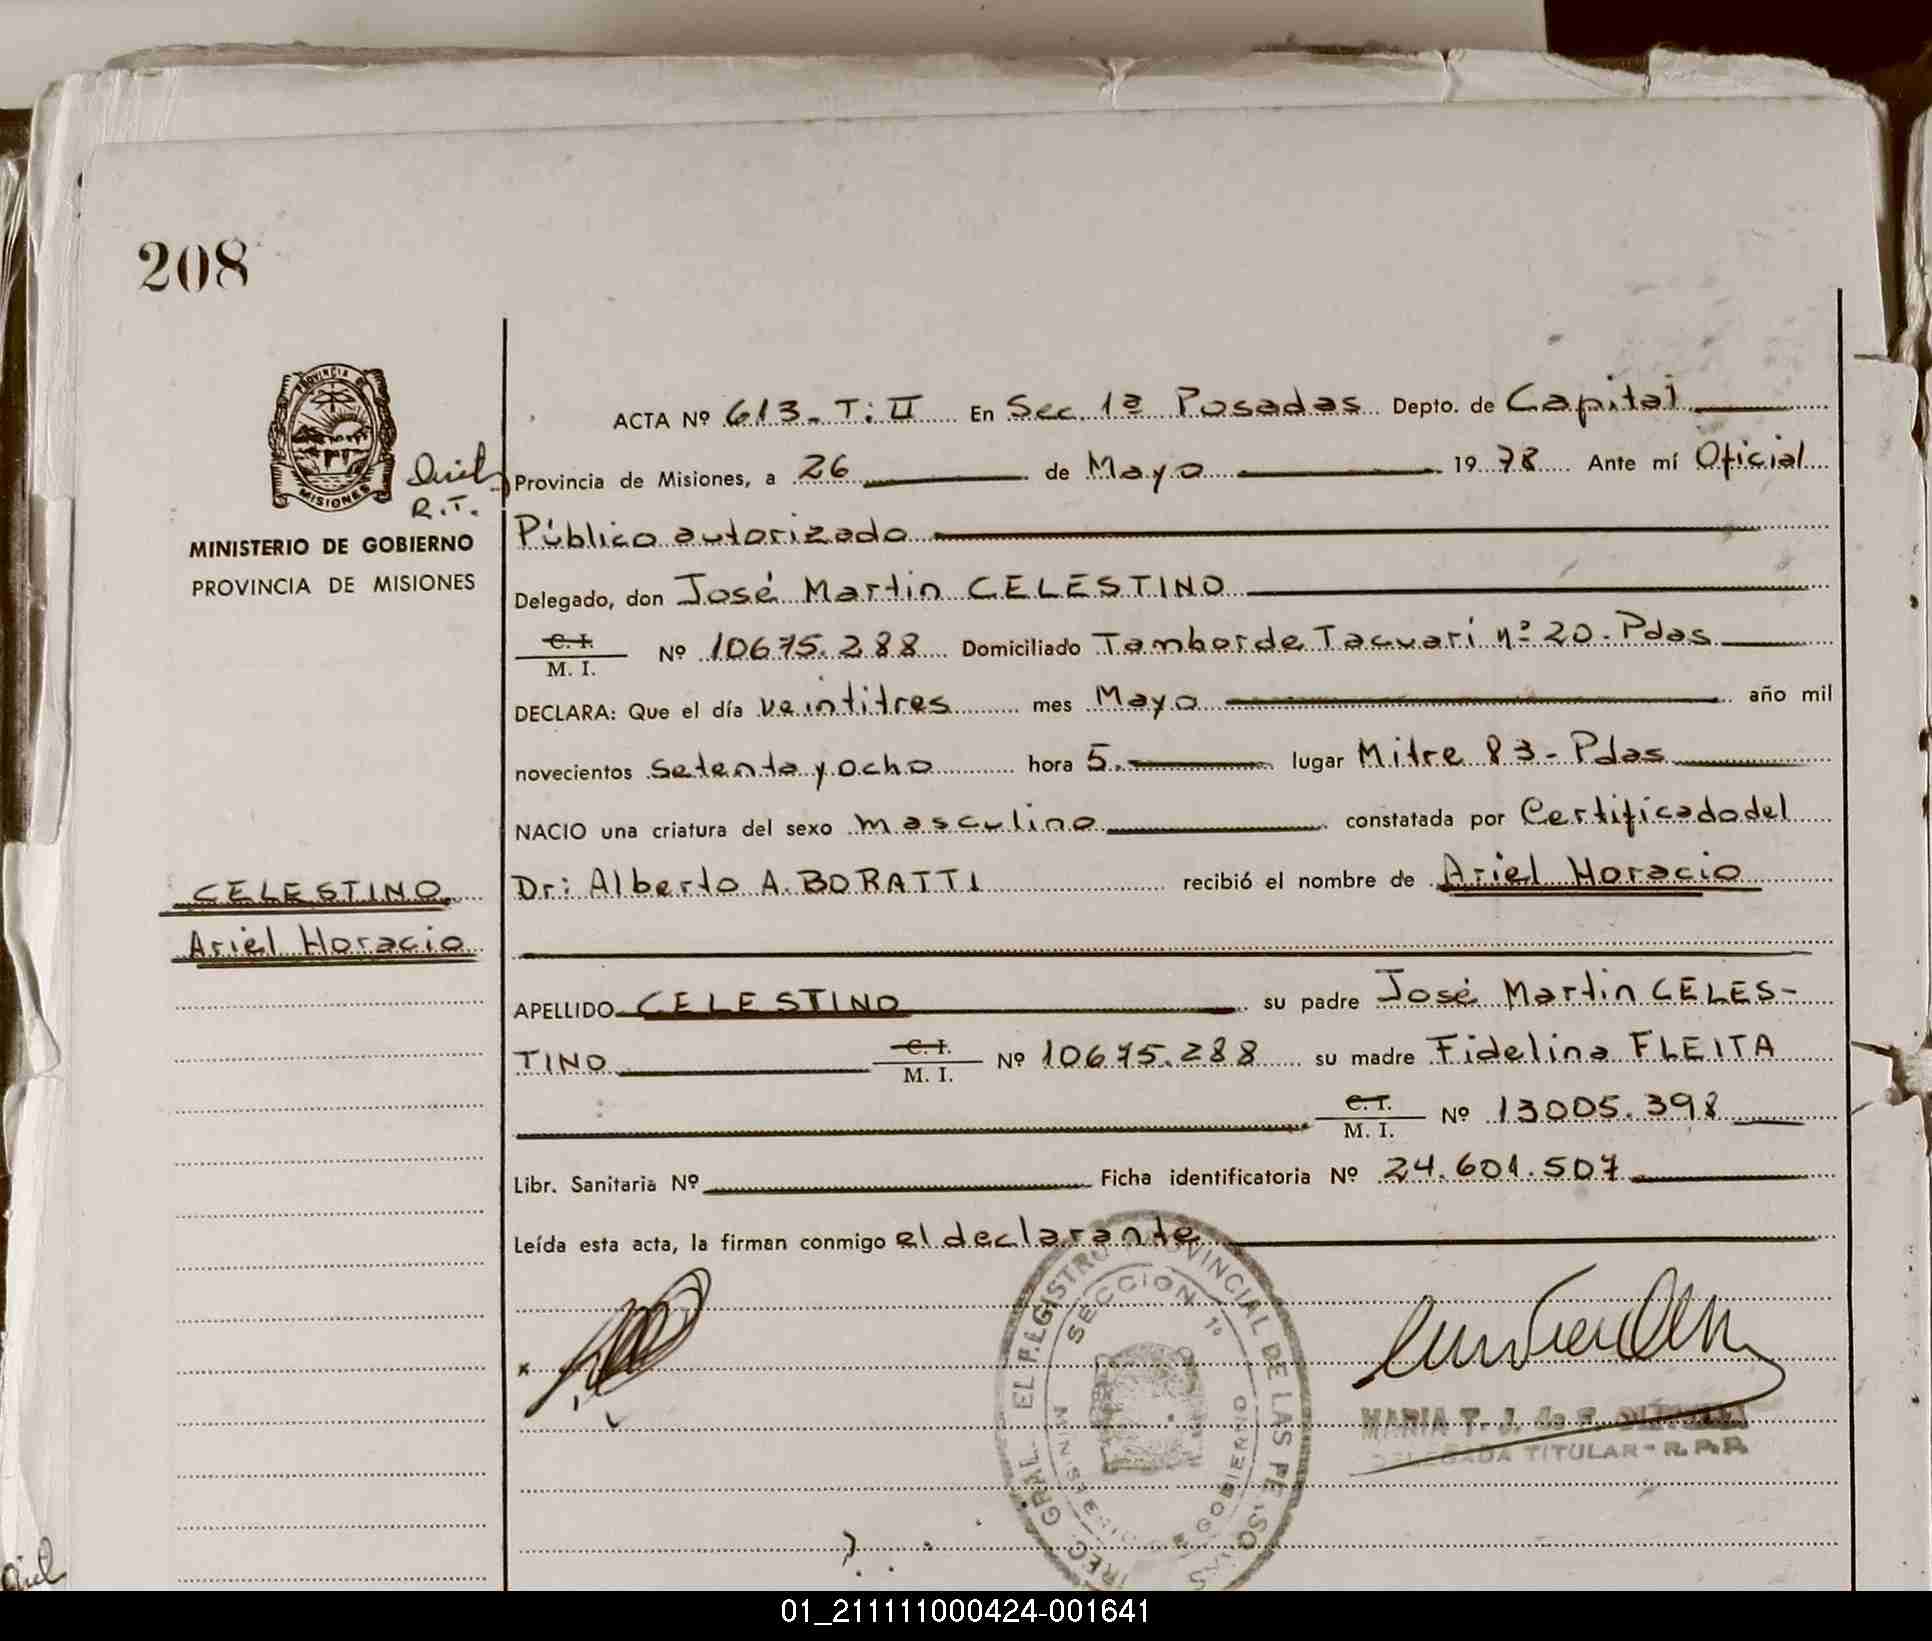 208
PROVINCIA DE
MISIONES
R.T.
MINISTERIO DE GOBIERNO
PROVINCIA DE MISIONES
CELESTINO
Ariel Horacio
ACTA Nº 613. T: II En Sec. 1ª Posadas Depto. de Capital
Provincia de Misiones, a 26 de Mayo 1978 Ante mí Oficial
Público autorizado
Delegado, don José Martin CELESTINO
C. I.
M. I. Nº 10675.288 Domiciliado Tambor de Tacuarí nº 20 - Pdas
DECLARA: Que el día veintitres mes Mayo año mil
novecientos setenta y ocho hora 5. lugar Mitre 83 - Pdas
NACIO una criatura del sexo masculino constatada por Certificado del
Dr: Alberto A. BORATTI recibió el nombre de Ariel Horacio
APELLIDO CELESTINO su padre José Martin CELES-
TINO C. I. M. I. Nº 10675.288 su madre Fidelina FLEITA
C. I.
M. I. Nº 13005.398
Libr. Sanitaria Nº Ficha identificatoria Nº 24.601.507
Leída esta acta, la firman conmigo el declarante
REGISTRO PROVINCIAL DE LAS PERSONAS
SECCION 1ª
GOBIERNO
MARIA T. J. de F.
DELEGADA TITULAR - R.P.P.
01_211111000424-001641